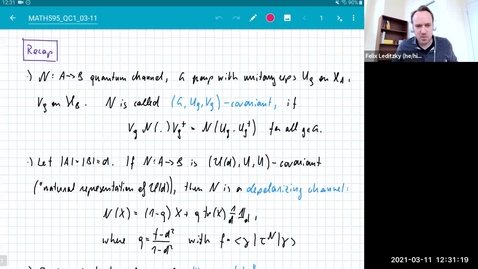 12:31
MATH595_QC1_03-11
Recap
·) N: A→B quantum channel, G group with unitary reps U_g on ℋ_A,
V_g on ℋ_B. N is called (G, U_g, V_g)-covariant, if
V_g N(.) V_g^† = N(U_g . U_g^†) for all g∈G.
·) Let |A|=|B|=d. If N: A→B is (U(d), U, U)-covariant
("natural representation of U(d)), then N is a depolarizing channel:
N(X) = (1-q) X + q tr(X) 1/d 𝟙_d,
where q = (f-d²)/(1-d²) with f = <γ| τ^N |γ>
Felix Leditzky (he/hi...
2021-03-11 12:31:19